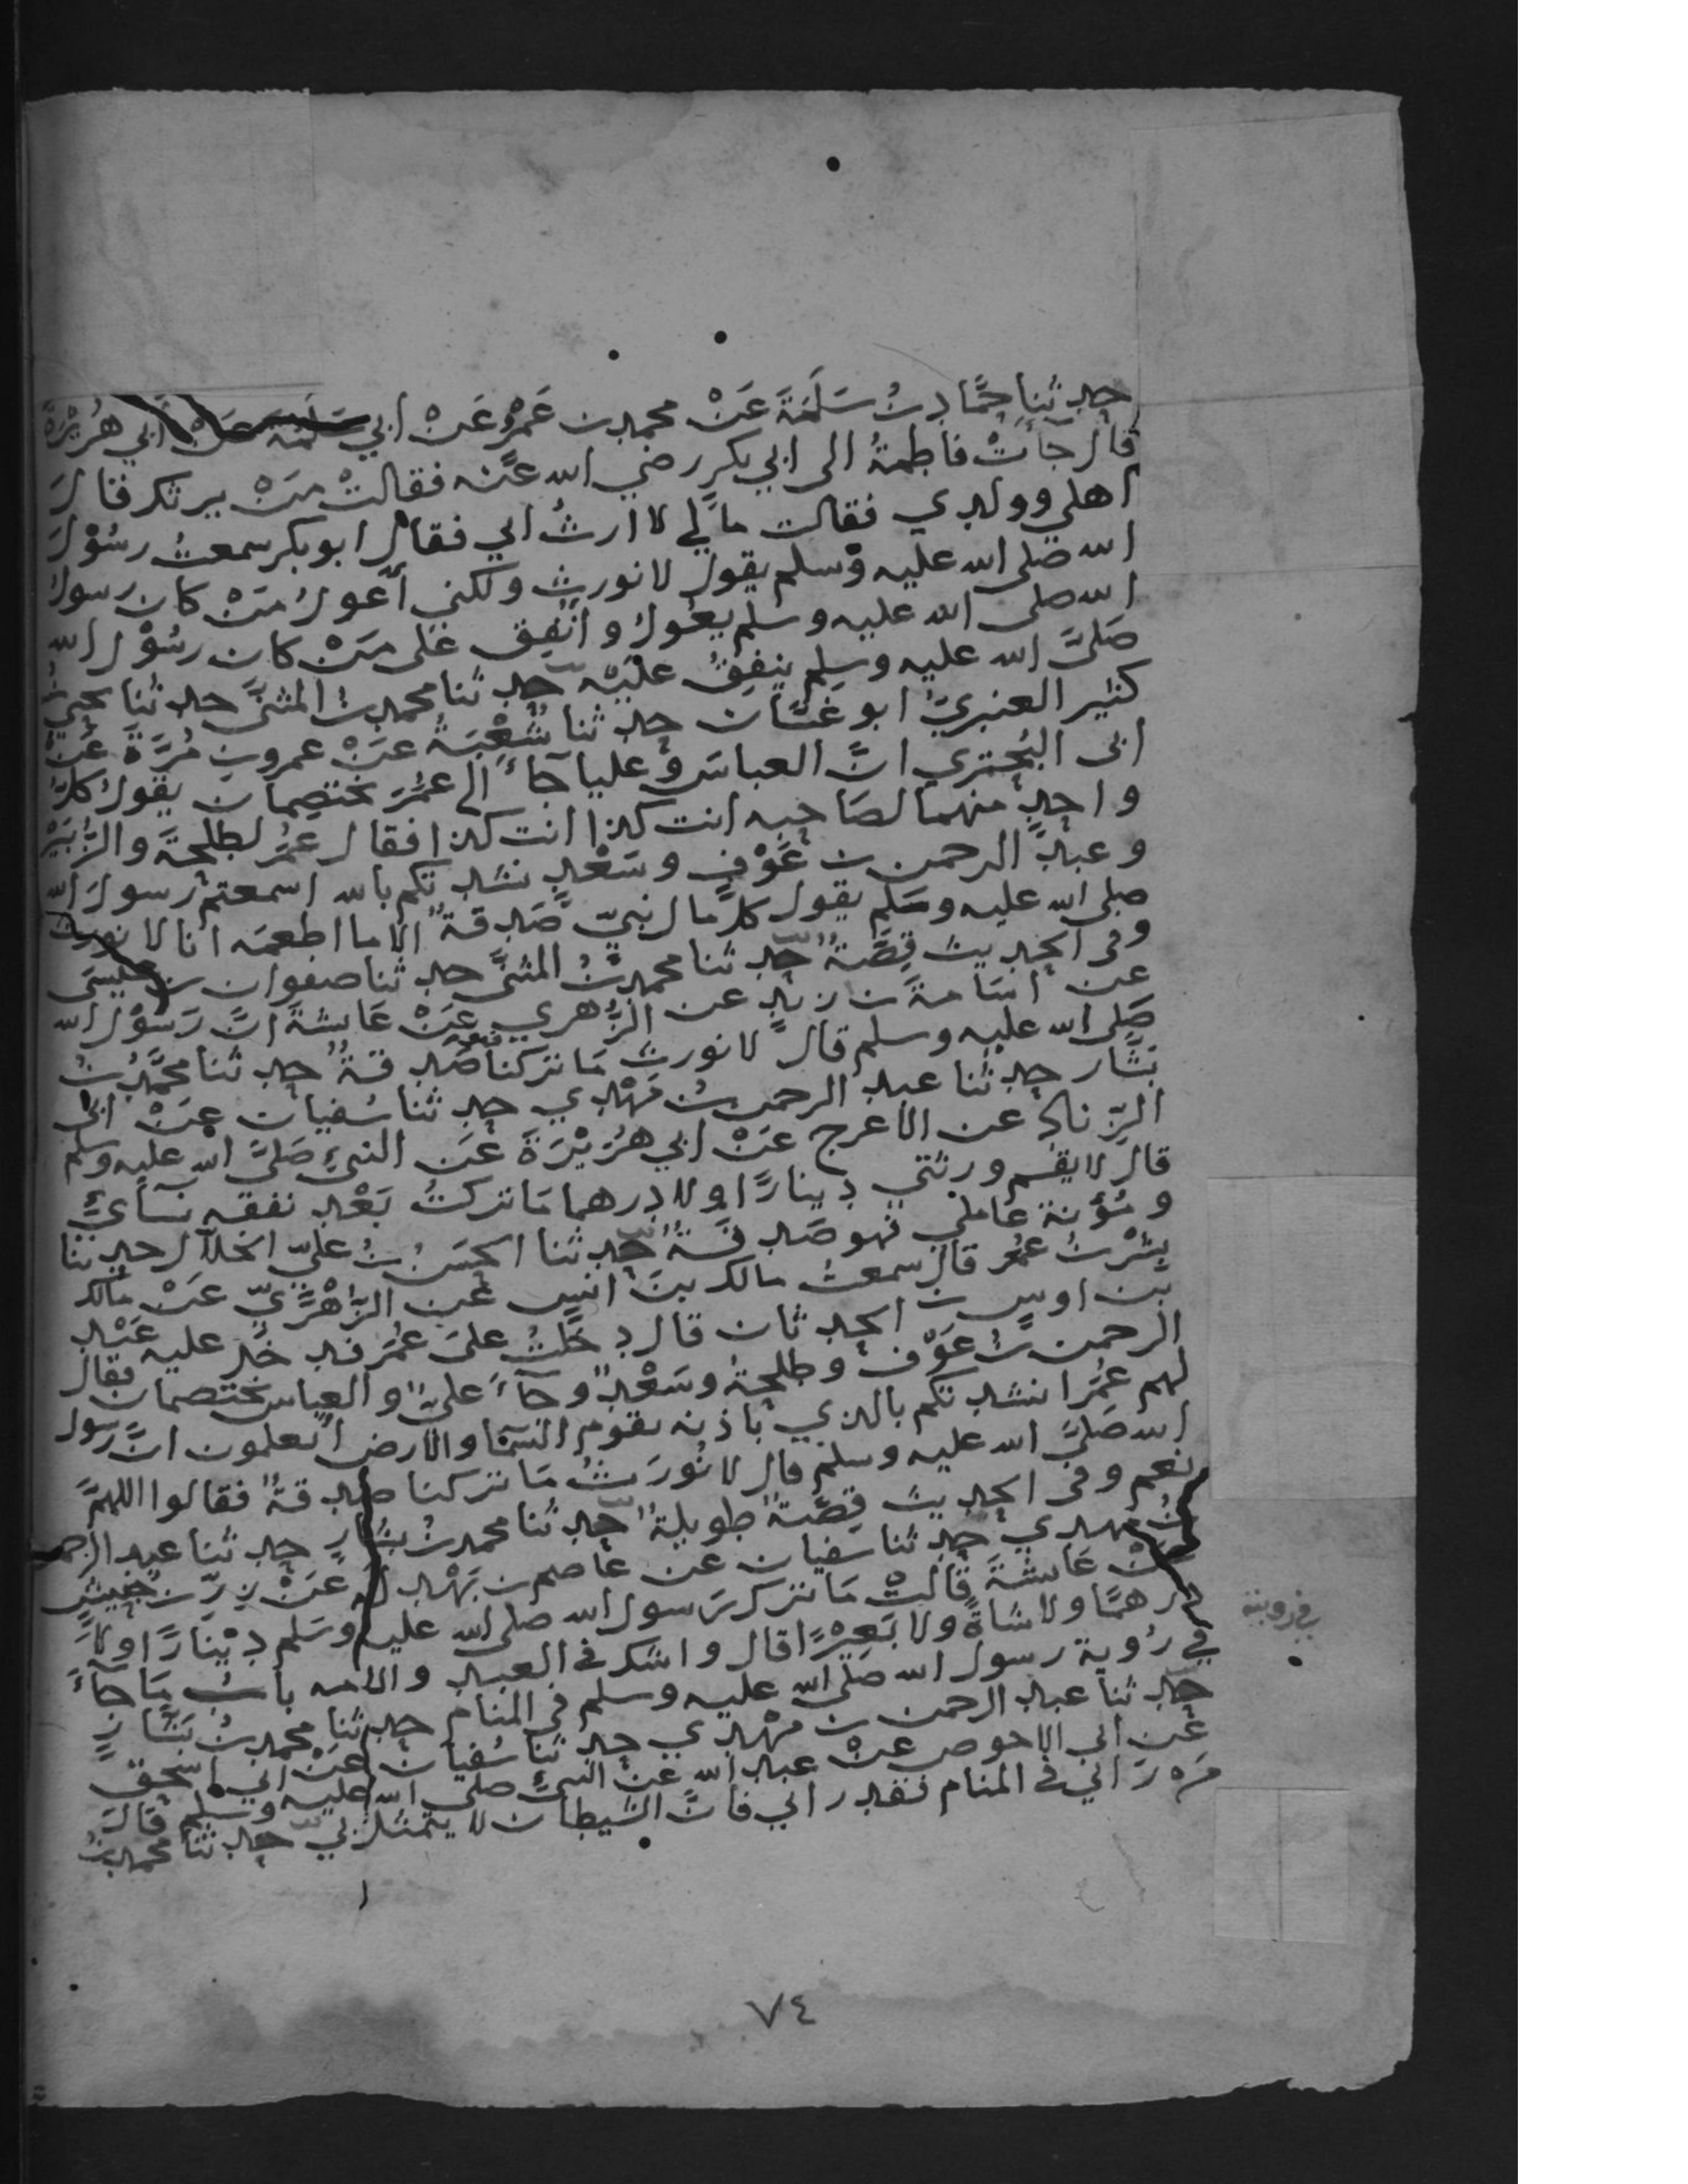 حدثنا حماد بن سلمة عن محمد بن عمرو عن ابي سلمة عن ابي هريرة
قال جات فاطمة الى ابي بكر رضي الله عنه فقالت من يرثك فقال
اهلي وولدي فقالت مالي لا ارث ابي فقال ابو بكر سمعت رسول
الله صلى الله عليه وسلم يقول لا نورث ولكني اعول من كان رسول
الله صلى الله عليه وسلم يعول وانفق على من كان رسول الله
صلى الله عليه وسلم ينفق عليه حدثنا محمد بن المثنى حدثنا يحيى بن
كثير العنبري ابو غسان حدثنا شعبة عن عمرو بن مرة عن
ابى البختري ان العباس وعليا جاء الى عمر يختصمان يقول كل
واحد منهما لصاحبه انت كذا انت كذا فقال عمر لطلحة والزبير
وعبد الرحمن بن عوف وسعد نشدتكم بالله اسمعتم رسول الله
صلى الله عليه وسلم يقول كل مال نبي صدقة الا ما اطعمه انا لا نورث
وفى الحديث قصة حدثنا محمد بن المثنى حدثنا صفوان بن عيسى
عن اسامة بن زيد عن الزهري عن عايشة ان رسول الله
صلى الله عليه وسلم قال لا نورث ما تركنا فهو صدقة حدثنا محمد بن
بشار حدثنا عبد الرحمن بن مهدي حدثنا سفيان عن ابى
الزناد عن الاعرج عن ابي هريرة عن النبي صلى الله عليه وسلم
قال لا يقسم ورثتي دينارا ولا درهما ما تركت بعد نفقه نسآءي
ومؤنة عاملي فهو صدقة حدثنا الحسن بن علي الخلال حدثنا
بشر بن عمر قال سمعت مالك بن انس عن الزهري عن مالك
بن اوس بن الحدثان قال دخلت على عمر فدخل عليه عبد
الرحمن بن عوف وطلحة وسعد وجآء علي والعباس يختصمان فقال
لهم عمر انشدتكم بالذي باذنه تقوم السماء والارض اتعلمون ان رسول
الله صلى الله عليه وسلم قال لا نورث ما تركنا صدقة فقالوا اللهم
نعم وفى الحديث قصة طويلة حدثنا محمد بن بشار حدثنا عبد الرحمن
بن مهدي حدثنا سفيان عن عاصم بن بهدلة عن زر بن حبيش
عن عايشة قالت ما ترك رسول الله صلى الله عليه وسلم دينارا ولا
درهما ولا شاة ولا بعيرا قال واشك في العبد والامه باب ما جآء
في رؤية رسول الله صلى الله عليه وسلم فى المنام حدثنا محمد بن بشار
حدثنا عبد الرحمن بن مهدي حدثنا سفيان عن ابي اسحق
عن ابي الاحوص عن عبد الله عن النبي صلى الله عليه وسلم قال
من راني في المنام فقد راني فان الشيطان لا يتمثل بي حدثنا محمد بن
في رويته
٧٤